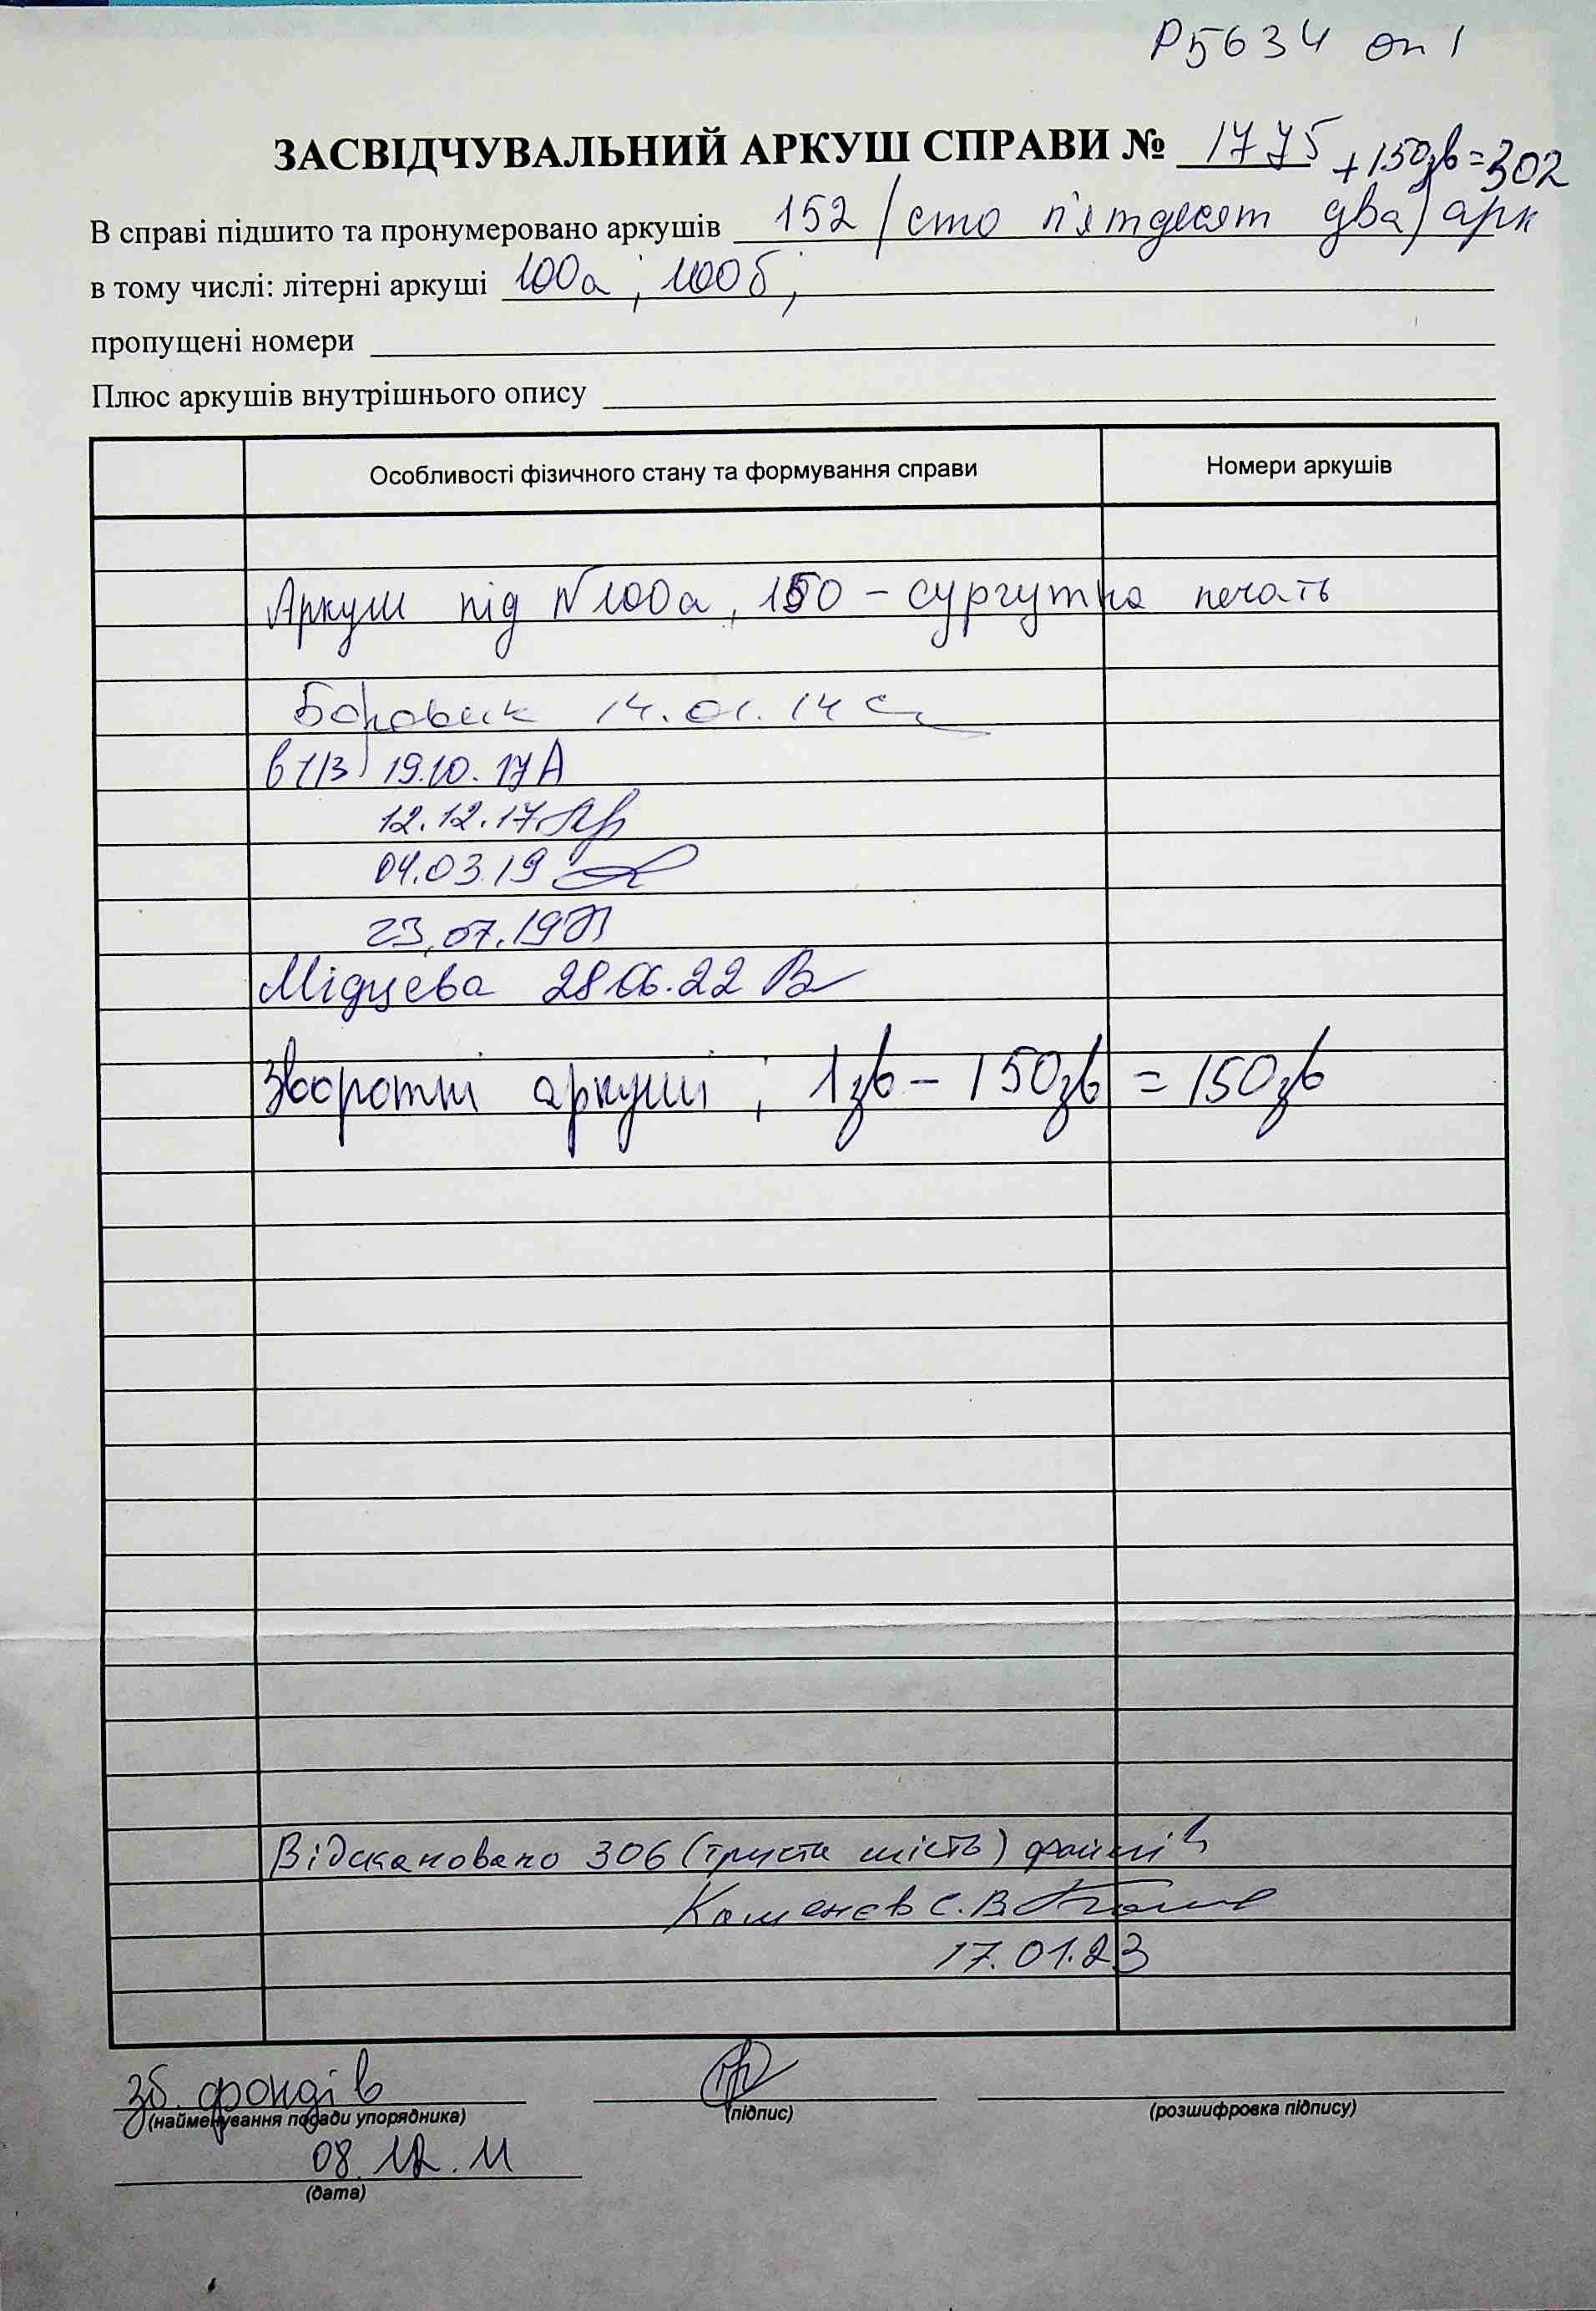 Р5634 оп 1
ЗАСВІДЧУВАЛЬНИЙ АРКУШ СПРАВИ № 1775
+150зв=302
В справі підшито та пронумеровано аркушів 152 (сто п'ятдесят два) арк
в тому числі: літерні аркуші 100а; 100б;
пропущені номери
Плюс аркушів внутрішнього опису
Особливості фізичного стану та формування справи Номери аркушів
Аркуш під №100а, 150 – сургутна печать
Боровик 14.01.14
19.10.17
12.12.17
04.03.19
23.07.19
Мідцева 28.06.22
Зворотні аркуші; 1зв – 150зв = 150зв
Відскановано 306 (триста шість) файлів
Каменєв С.В.
17.01.23
зб. фондів
(найменування посади упорядника) (підпис) (розшифровка підпису)
08.12.11
(дата)